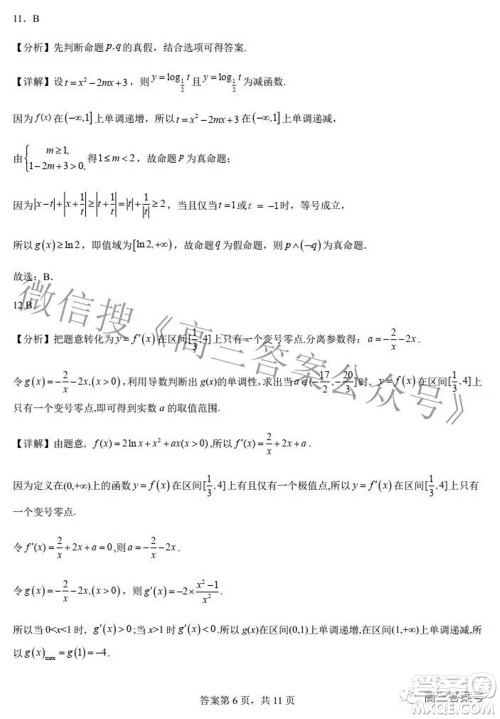 11．B
【分析】先判断命题 p,q 的真假，结合选项可得答案.
【详解】设 t=x²−2mx+3，则 y=log_{1/2} t 且 y=log_{1/2} t 为减函数.
因为 f(x) 在 (−∞,1] 上单调递增，所以 t=x²−2mx+3 在 (−∞,1] 上单调递减，
由 {m≥1, 1−2m+3>0, 得 1≤m<2，故命题 p 为真命题；
因为 |x−t|+|x+1/t|≥|t+1/t|=|t|+1/|t|≥2，当且仅当 t=1 或 t =−1 时，等号成立，
所以 g(x)≥ln2，即值域为 [ln2,+∞)，故命题 q 为假命题，则 p∧(¬q) 为真命题．
故选：B．
12.B
【分析】把题意转化为 y=f′(x) 在区间[1/3,4]上只有一个变号零点.分离参数得：a=−2/x−2x.
令 g(x)=−2/x−2x,(x>0)，利用导数判断出 g(x)的单调性，求出当 a∈(−17/2,−20/3] 时，g(x) 在区间[1/3,4]上
只有一个变号零点，即可得到实数 a 的取值范围.
【详解】由题意，f(x)=2lnx+x²+ax(x>0),所以 f′(x)=2/x+2x+a.
因为定义在(0,+∞)上的函数 y=f(x) 在区间[1/3,4]上有且仅有一个极值点,所以 y=f′(x) 在区间[1/3,4]上只
有一个变号零点.
令 f′(x)=2/x+2x+a=0,则 a=−2/x−2x.
令 g(x)=−2/x−2x,(x>0)，则 g′(x)=−2×(x²−1)/x².
所以当 0<x<1 时，g′(x)>0;当 x>1 时 g′(x)<0.所以 g(x)在区间(0,1)上单调递增,在区间(1,+∞)上单调递减,所
以 g(x)max=g(1)=−4.
答案第 6 页，共 11 页
微信搜《高三答案公众号》
高三答案号
MXQE.COM